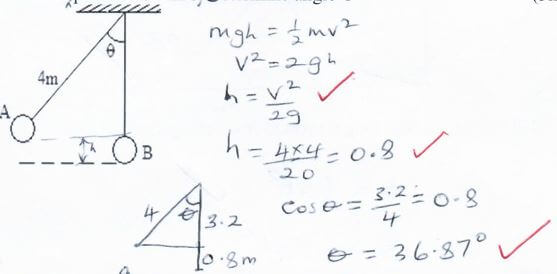 θ
4m
A
h
B
mgh = ½ mv²
v² = 2gh
h = v²/2g
h = 4×4/20 = 0.8
4
θ
3.2
0.8m
cos θ = 3.2/4 = 0.8
θ = 36.87°